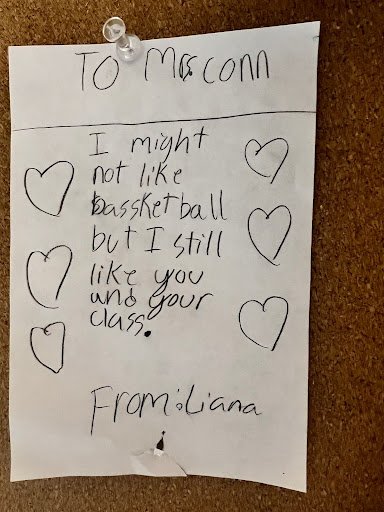 To Mrs.conn
I might
not like
bassketball
but I still
like you
and your
class.
From:Liana